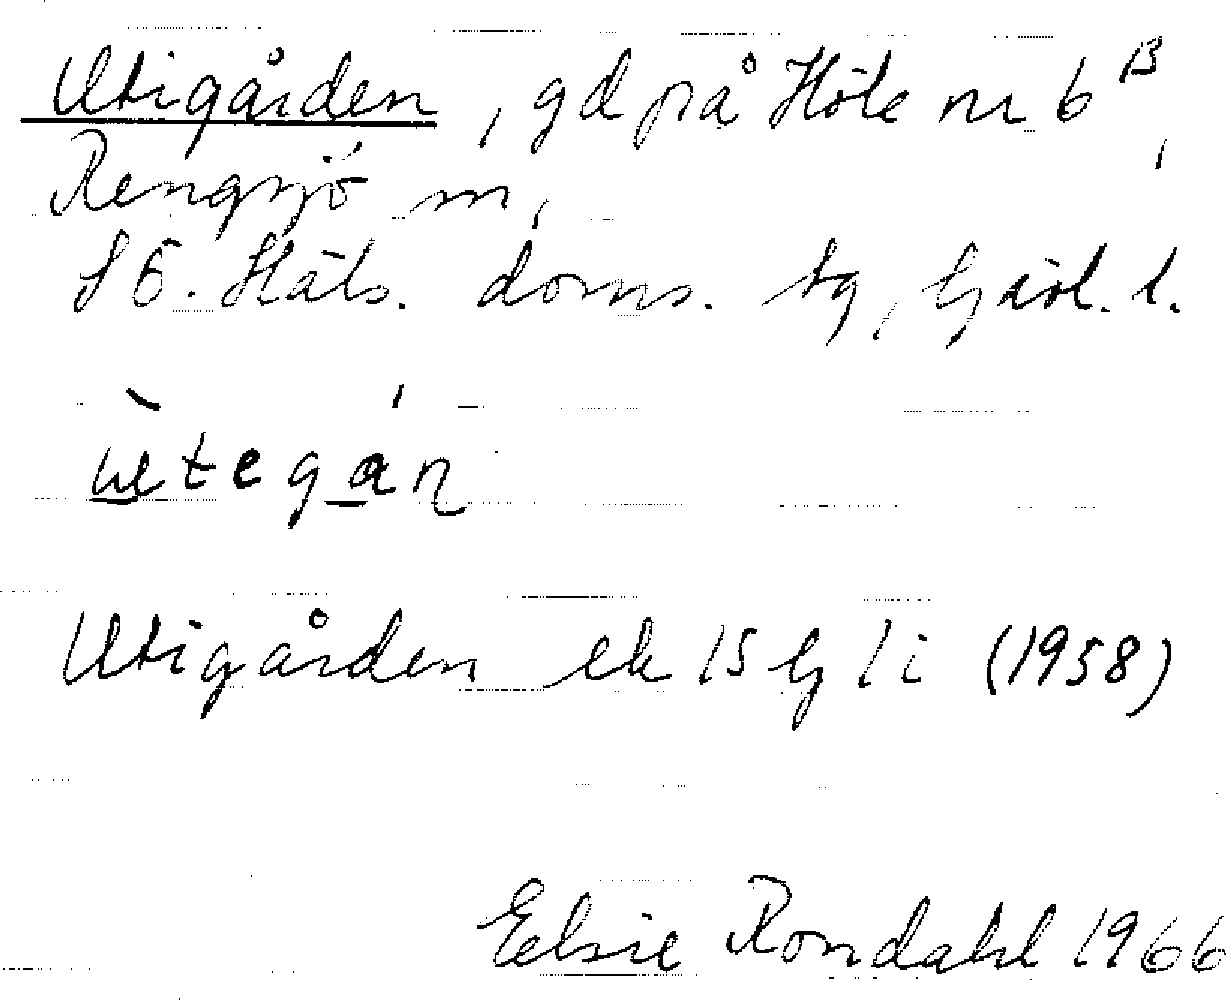 Utigården, gd på Höle nr 6 B,
Rengsjö sn,
SÖ. Häls. doms. tg, Gävl. l.
ùtegán
Utigården ek 15 G 1 i (1958)
Elsie Rondahl 1966